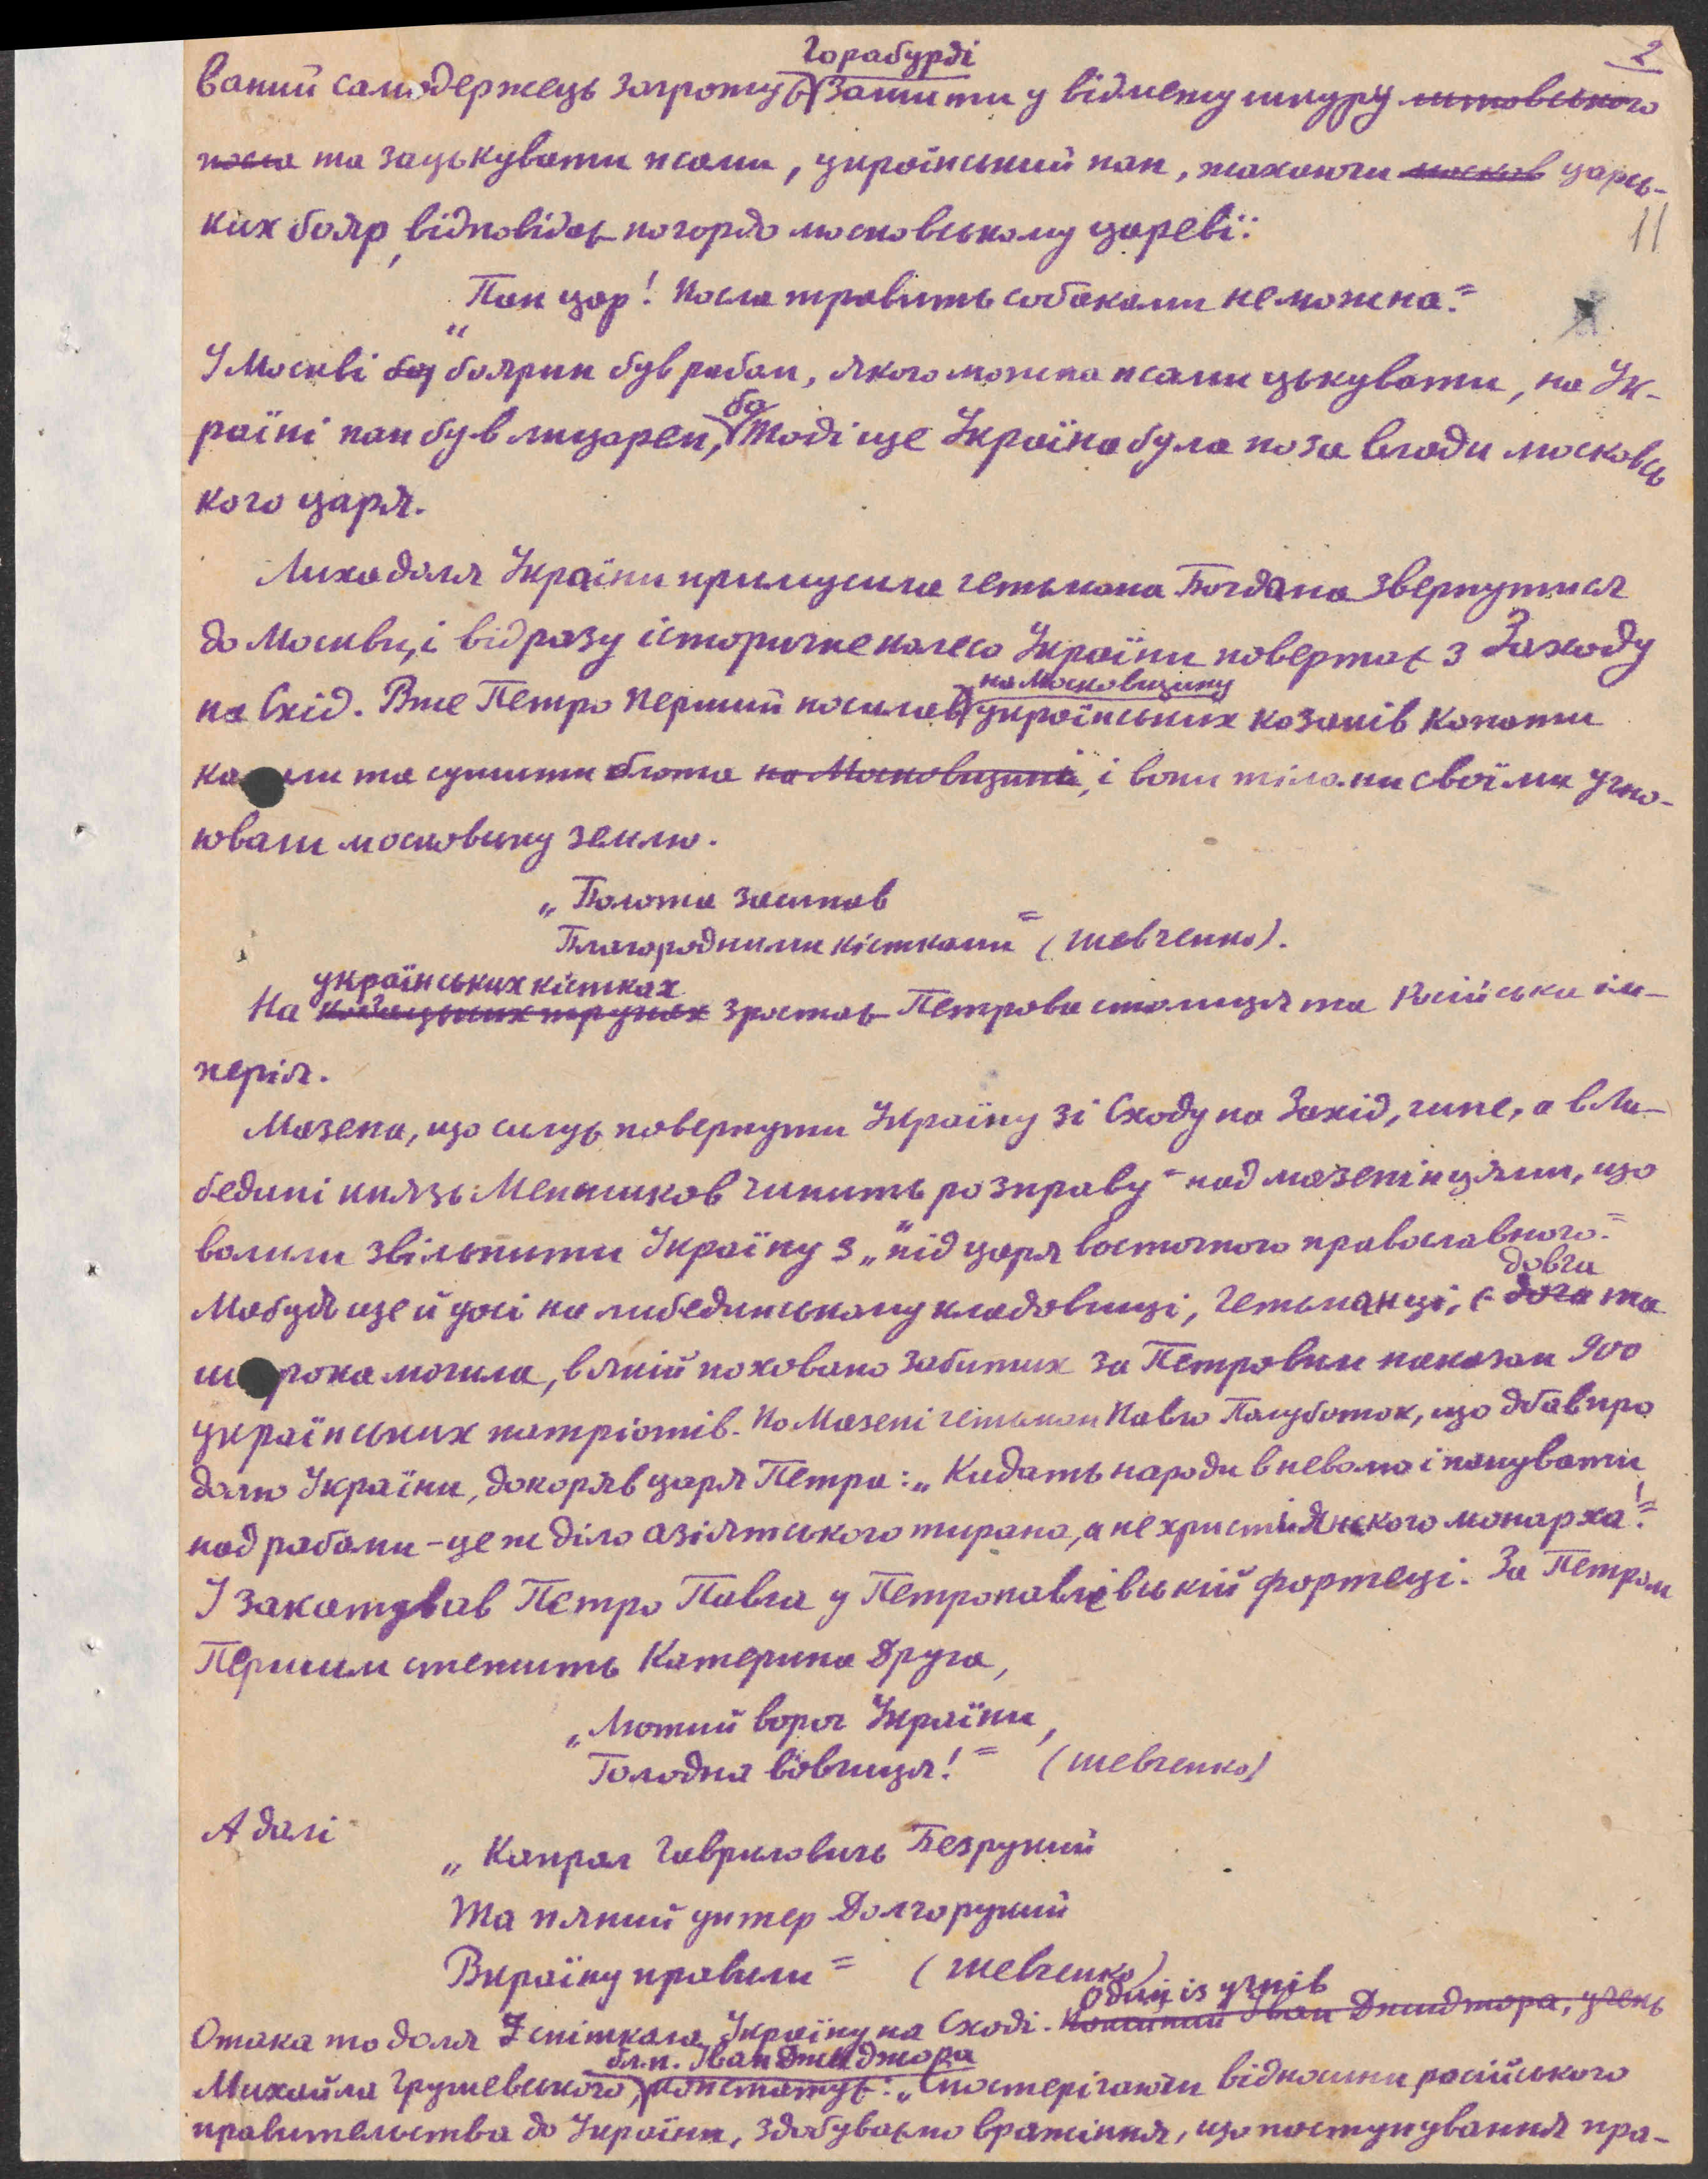 2
Горабурді
ваний самодержець загрожує зашити у відмежу шкуру литовського
посла та зацькувати псами, український пан, жахаючи москов царсь-
11
ких бояр, відповідає погордо московському цареві:
„Пан цар! Посла травить собаками не можна."
У Москві був боярин був рабом, якого можна псами цькувати, на Ук-
бо
раїні пан був лицарем, тоді ще Україна була поза влади московсь
кого царя.
Лиха доля України примусила гетьмана Богдана звернутися
до Москви, і відразу історичне колесо України повертає з Заходу
на Московщину
на Схід. Вже Петро Перший посилав українських козаків копати
канали та сушити болота на Московщині, і вони тілами своїми угно-
ювали московську землю.
„Болота засипав
Благородними кістками" (Шевченко).
українських кістках
На козацьких трупах зростає Петрова столиця та Російська ім-
перія.
Мазепа, що силує повернути Україну зі Сходу на Захід, гине, а в Ли-
бедині князь Меншиков чинить „розправу" над мазепінцями, що
волили звільнити Україну з „під царя восточного православного."
довга
Мабуть ще й досі на либединському кладовищі, Гетьманці, є дога та
широка могила, в якій поховано забитих за Петровим наказом 900
українських патріотів. По Мазепі гетьман Павло Полуботок, що дбав про
долю України, докоряв царя Петра: „Кидать народи в неволю і панувати
над рабами - це ж діло азіятського тирана, а не християнського монарха!"
І закатував Петро Павла у Петропавлівській фортеці. За Петром
Першим стежить Катерина Друга,
„Лютий ворог України,
Голодна вовчиця!" (Шевченко)
А далі
„Капрал Гаврилович Безрукий
Та пяний унтер Долгорукий
Вкраїну правили" (Шевченко)
Один із учнів
Отака то доля спіткала Україну на Сході. Покійний Іван Джиджора, учень
бл.п. Іван Джиджора
Михайла Грушевського, констатує: „Спостерігаючи відносини російського
правительства до України, здобуваємо вражіння, що поступування пра-